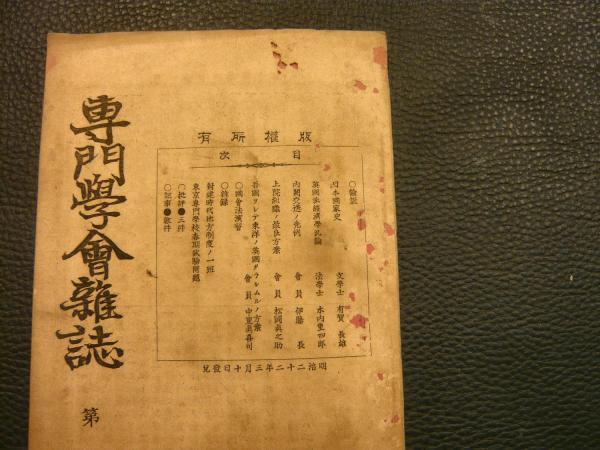 版權所有
目次
○論說
日本國家史 文學士 有賀長雄
英國法經濟學汎論 法學士 水內重四郎
內閣交迭ノ先例 會員 伊勝長
上院組織ノ最良方案 會員 松岡眞之助
吾國ヲシテ東洋ノ英國タラシムルノ方案 會員 中熏眞喜司
○國會法演習
○雜錄
封建時代地方制度ノ一班
東京專門學校春期試驗問題
○批評●三件
○記事●數件
明治二十二年三月十日發兌
專門學會雜誌
第